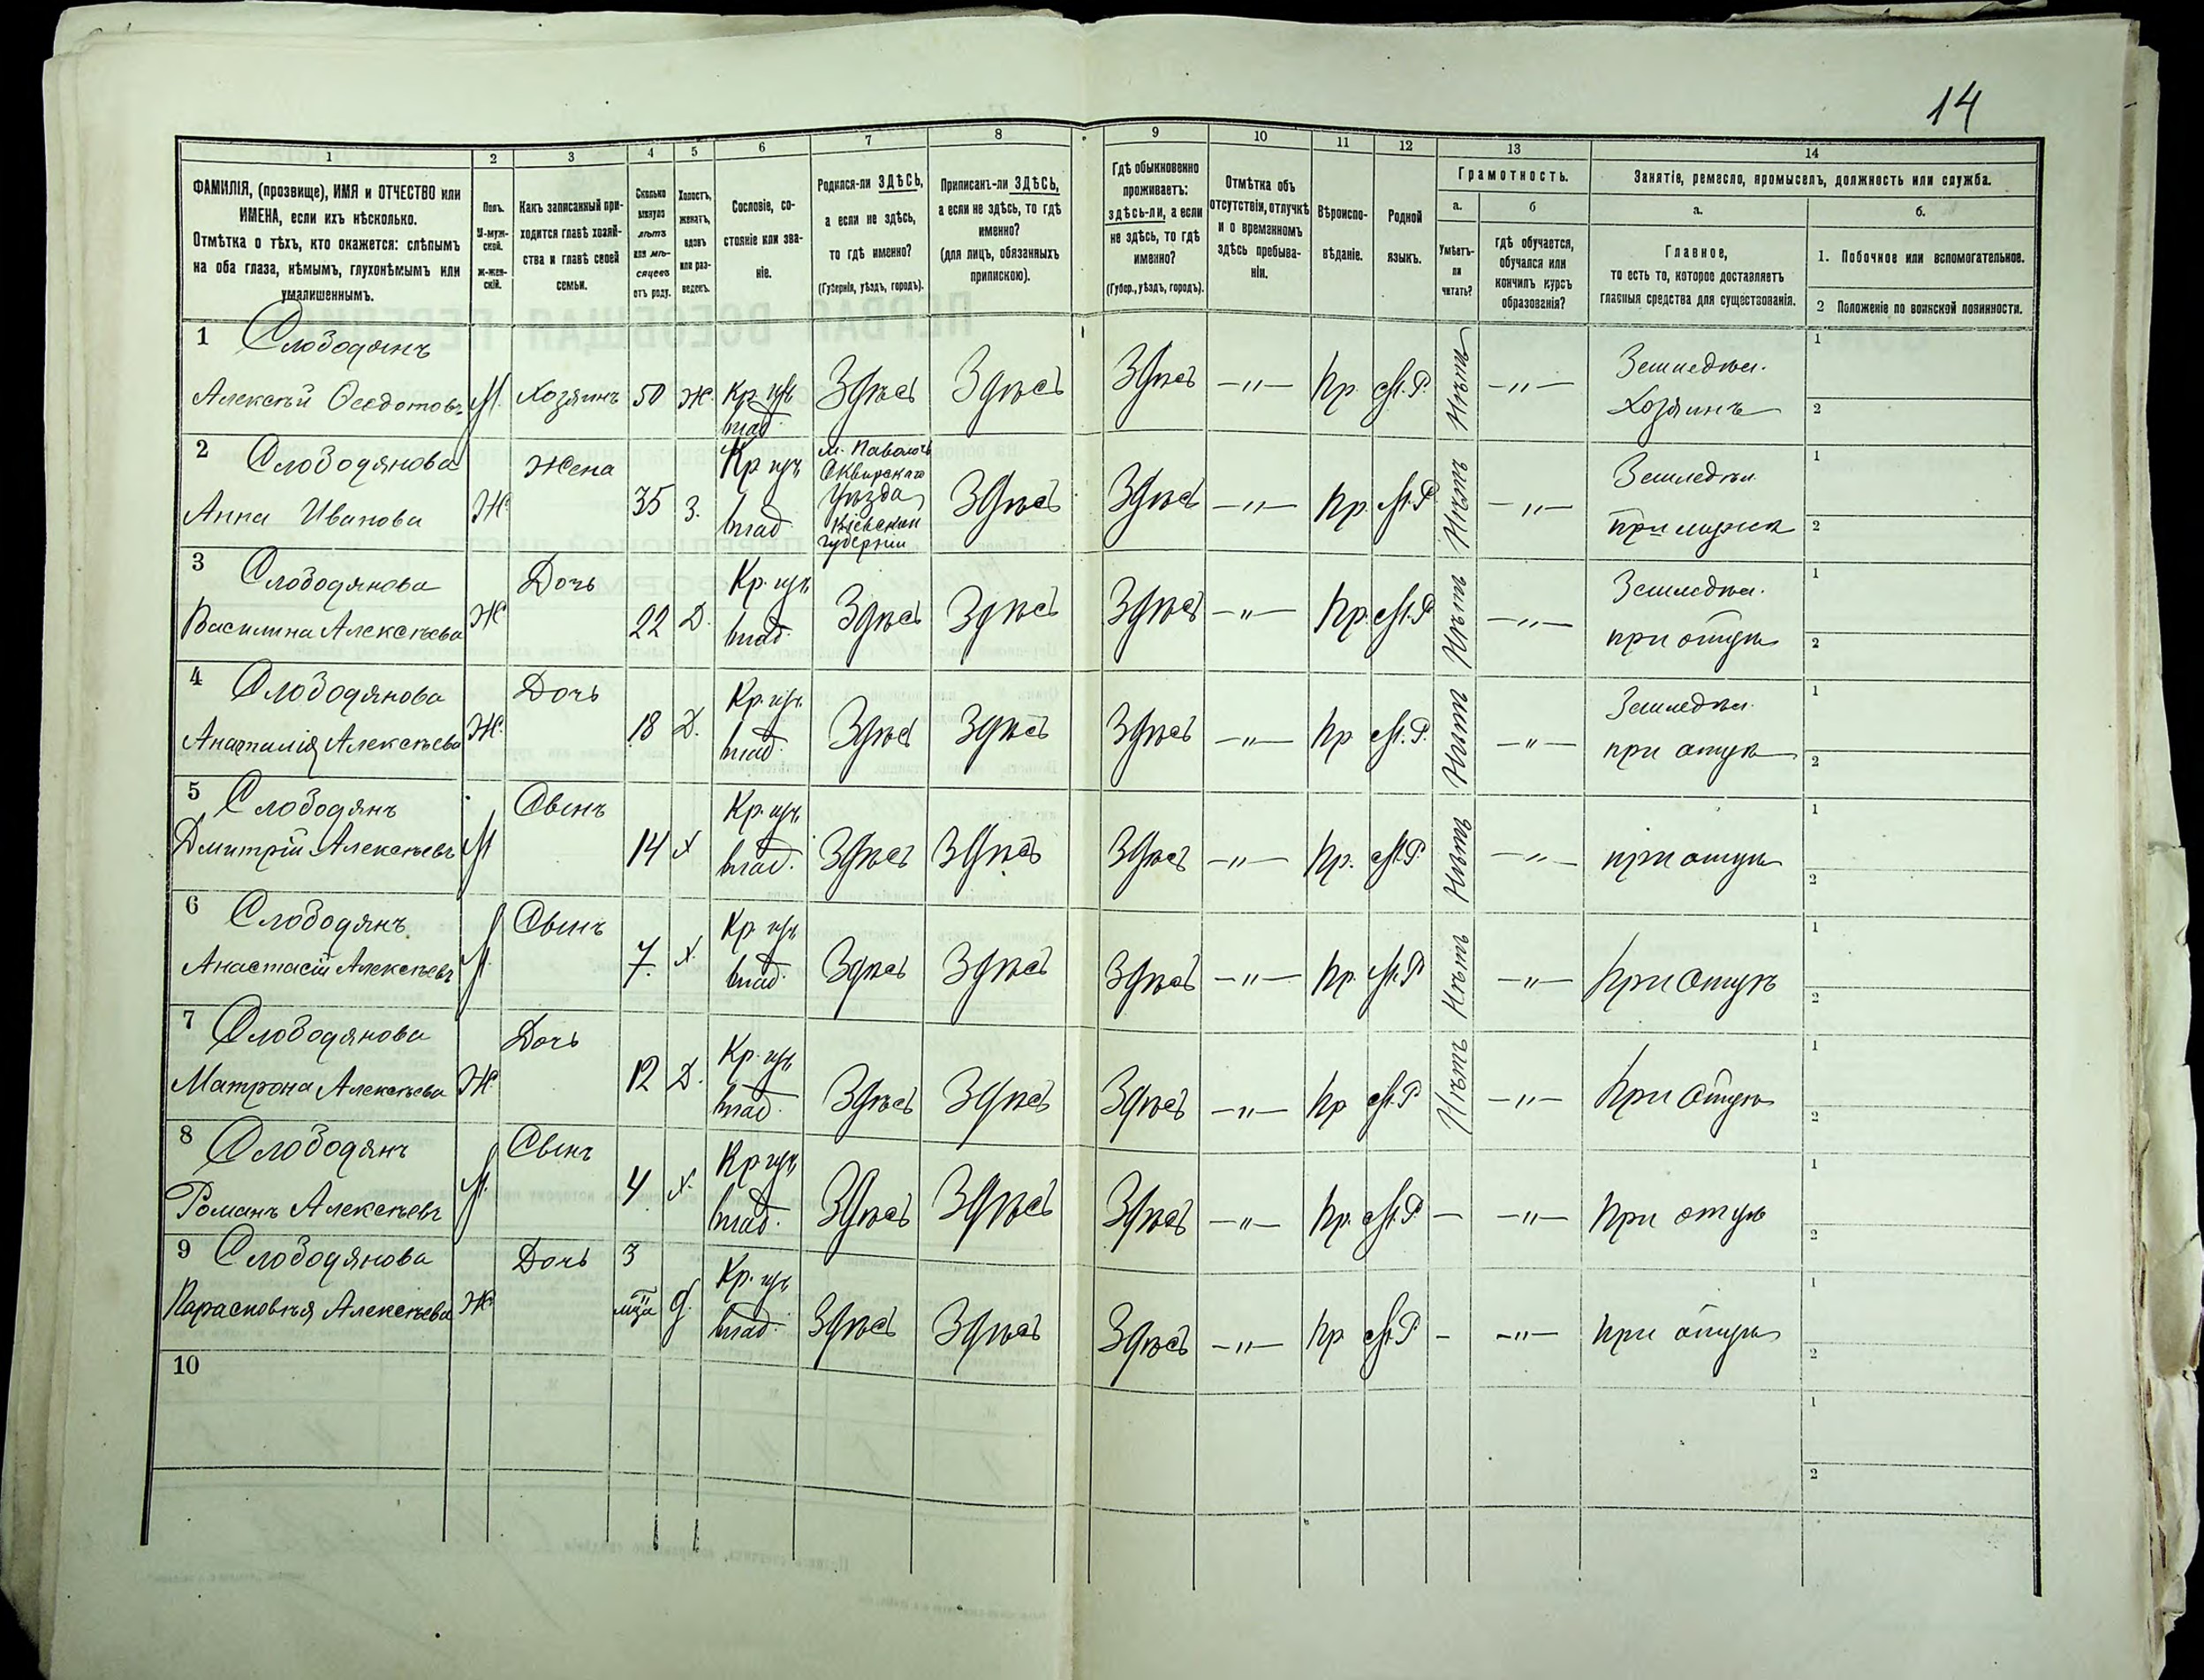 14
1 2 3 4 5 6 7 8 9 10 11 12 13 14
ФАМИЛІЯ, (прозвище), ИМЯ и ОТЧЕСТВО или
ИМЕНА, если ихъ нѣсколько.
Отмѣтка о тѣхъ, кто окажется: слѣпымъ
на оба глаза, нѣмымъ, глухонѣмымъ или
умалишеннымъ.
Полъ.
М-муж-
ской.
Ж-жен-
скій.
Какъ записанный при-
ходится главѣ хозяй-
ства и главѣ своей
семьи.
Сколько
минуло
лѣтъ
или мѣ-
сяцевъ
отъ роду.
Холостъ,
женатъ,
вдовъ
или раз-
веденъ.
Сословіе, со-
стояніе или зва-
ніе.
Родился-ли ЗДѢСЬ,
а если не здѣсь,
то гдѣ именно?
(Губернія, уѣздъ, городъ).
Приписанъ-ли ЗДѢСЬ,
а если не здѣсь, то гдѣ
именно?
(для лицъ, обязанныхъ
припискою).
Гдѣ обыкновенно
проживаетъ:
здѣсь-ли, а если
не здѣсь, то гдѣ
именно?
(Губер., уѣздъ, городъ).
Отмѣтка объ
отсутствіи, отлучкѣ
и о временномъ
здѣсь пребыва-
ніи.
Вѣроиспо-
вѣданіе.
Родной
языкъ.
Грамотность.
а.
Умѣетъ-
ли
читать?
б
гдѣ обучается,
обучался или
кончилъ курсъ
образованія?
Занятіе, ремесло, промыселъ, должность или служба.
а.
Главное,
то есть то, которое доставляетъ
главныя средства для существованія.
б.
1. Побочное или вспомогательное.
2 Положеніе по воинской повинности.
1 Слободянъ
Алексѣй Ѳеодотовъ М. Хозяинъ 50 Ж. Здѣсь Здѣсь Здѣсь —"— Пр. М.Р. Нѣтъ —"— Земледѣл.
Хозяинъ
1
2
2 Слободянова Жена
Анна Иванова Ж. 35 З.
м. Паволочь
Сквирскаго
Уѣзда
Кіевской
губерніи
Здѣсь Здѣсь —"— Пр. М.Р. Нѣтъ —"— Земледѣл.
при мужѣ
1
2
3 Слободянова Дочь
Василина Алексѣева Ж. 22 Д. Здѣсь Здѣсь Здѣсь —"— Пр. М.Р. Нѣтъ —"— Земледѣл.
при отцѣ
1
2
4 Слободянова Дочь
Анаталія Алексѣева Ж. 18 Д. Здѣсь Здѣсь Здѣсь —"— Пр М.Р. Нѣтъ —"— Земледѣл.
при отцѣ
1
2
5 Слободянъ Сынъ
Дмитрій Алексѣевъ М 14 Х Здѣсь Здѣсь Здѣсь —"— Пр. М.Р. Нѣтъ —"— при отцѣ
1
2
6 Слободянъ Сынъ
Анастасій Алексѣевъ М. 7. Х. Здѣсь Здѣсь Здѣсь —"— Пр. М.Р Нѣтъ —"— При Отцѣ
1
2
7 Слободянова Дочь
Матрона Алексѣева Ж. 12 Д. Здѣсь Здѣсь Здѣсь —"— Пр М.Р Нѣтъ —"— При Отцѣ
1
2
8 Слободянъ Сынъ
Романъ Алексѣевъ М. 4 Х. Здѣсь Здѣсь Здѣсь —"— Пр. М.Р. — —"— При отцѣ
1
2
9 Слободянова Дочь 3
Парасковѣя Алексѣева Ж мца д. Здѣсь Здѣсь Здѣсь —"— Пр М.Р — —"— При отцѣ
1
2
10
1
2